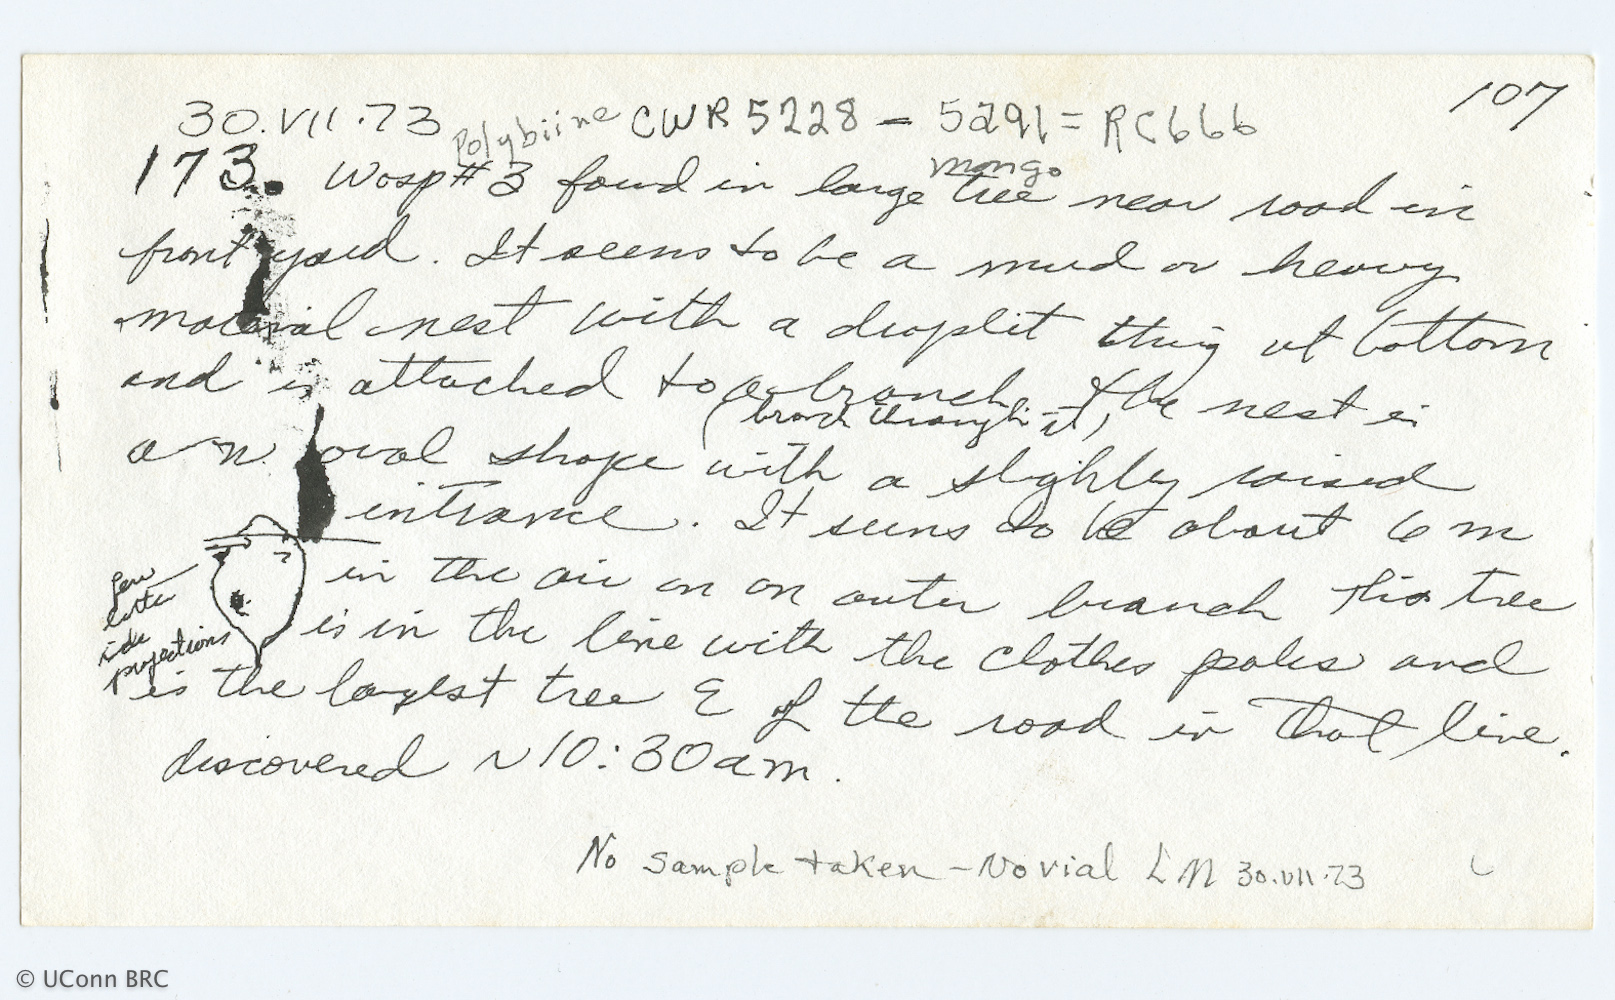 107
30.VII.73 Polybiine CWR 5228 - 5291 = RC666
173. Wasp #3 found in large mango tree near road in
front yard. It seems to be a mud or heavy
material nest with a droplit thing at bottom
and is attached to a branch, the nest is
(branch through it)
an oval shape with a slighly raised
entrance. It seems to be about 6 m
in the air on an outer branch this tree
is in the line with the clothes poles and
is the largest tree E of the road in that line.
discovered ~10:30am.
few
little
projections
No sample taken - No vial LM 30.VII.73
© UConn BRC